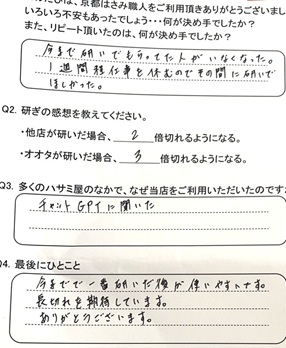 は、京都はさみ職人をご利用頂きありがとうございまし
いろいろ不安もあったでしょう・・・何が決め手でしたか？
また、リピート頂いたのは、何が決め手でしたか？
今まで研いでもらってた人がいなくなった。
1週間程仕事を休むのでその間に研いで
ほしかった。
Q2. 研ぎの感想を教えてください。
・他店が研いだ場合、 2 倍切れるようになる。
・オオタが研いだ場合、 3 倍切れるようになる。
Q3. 多くのハサミ屋のなかで、なぜ当店をご利用いただいたのです
チャットGPTに聞いた
Q4. 最後にひとこと
今までで一番研いだ後が使いやすいです。
長切れを期待しています。
ありがとうございます。